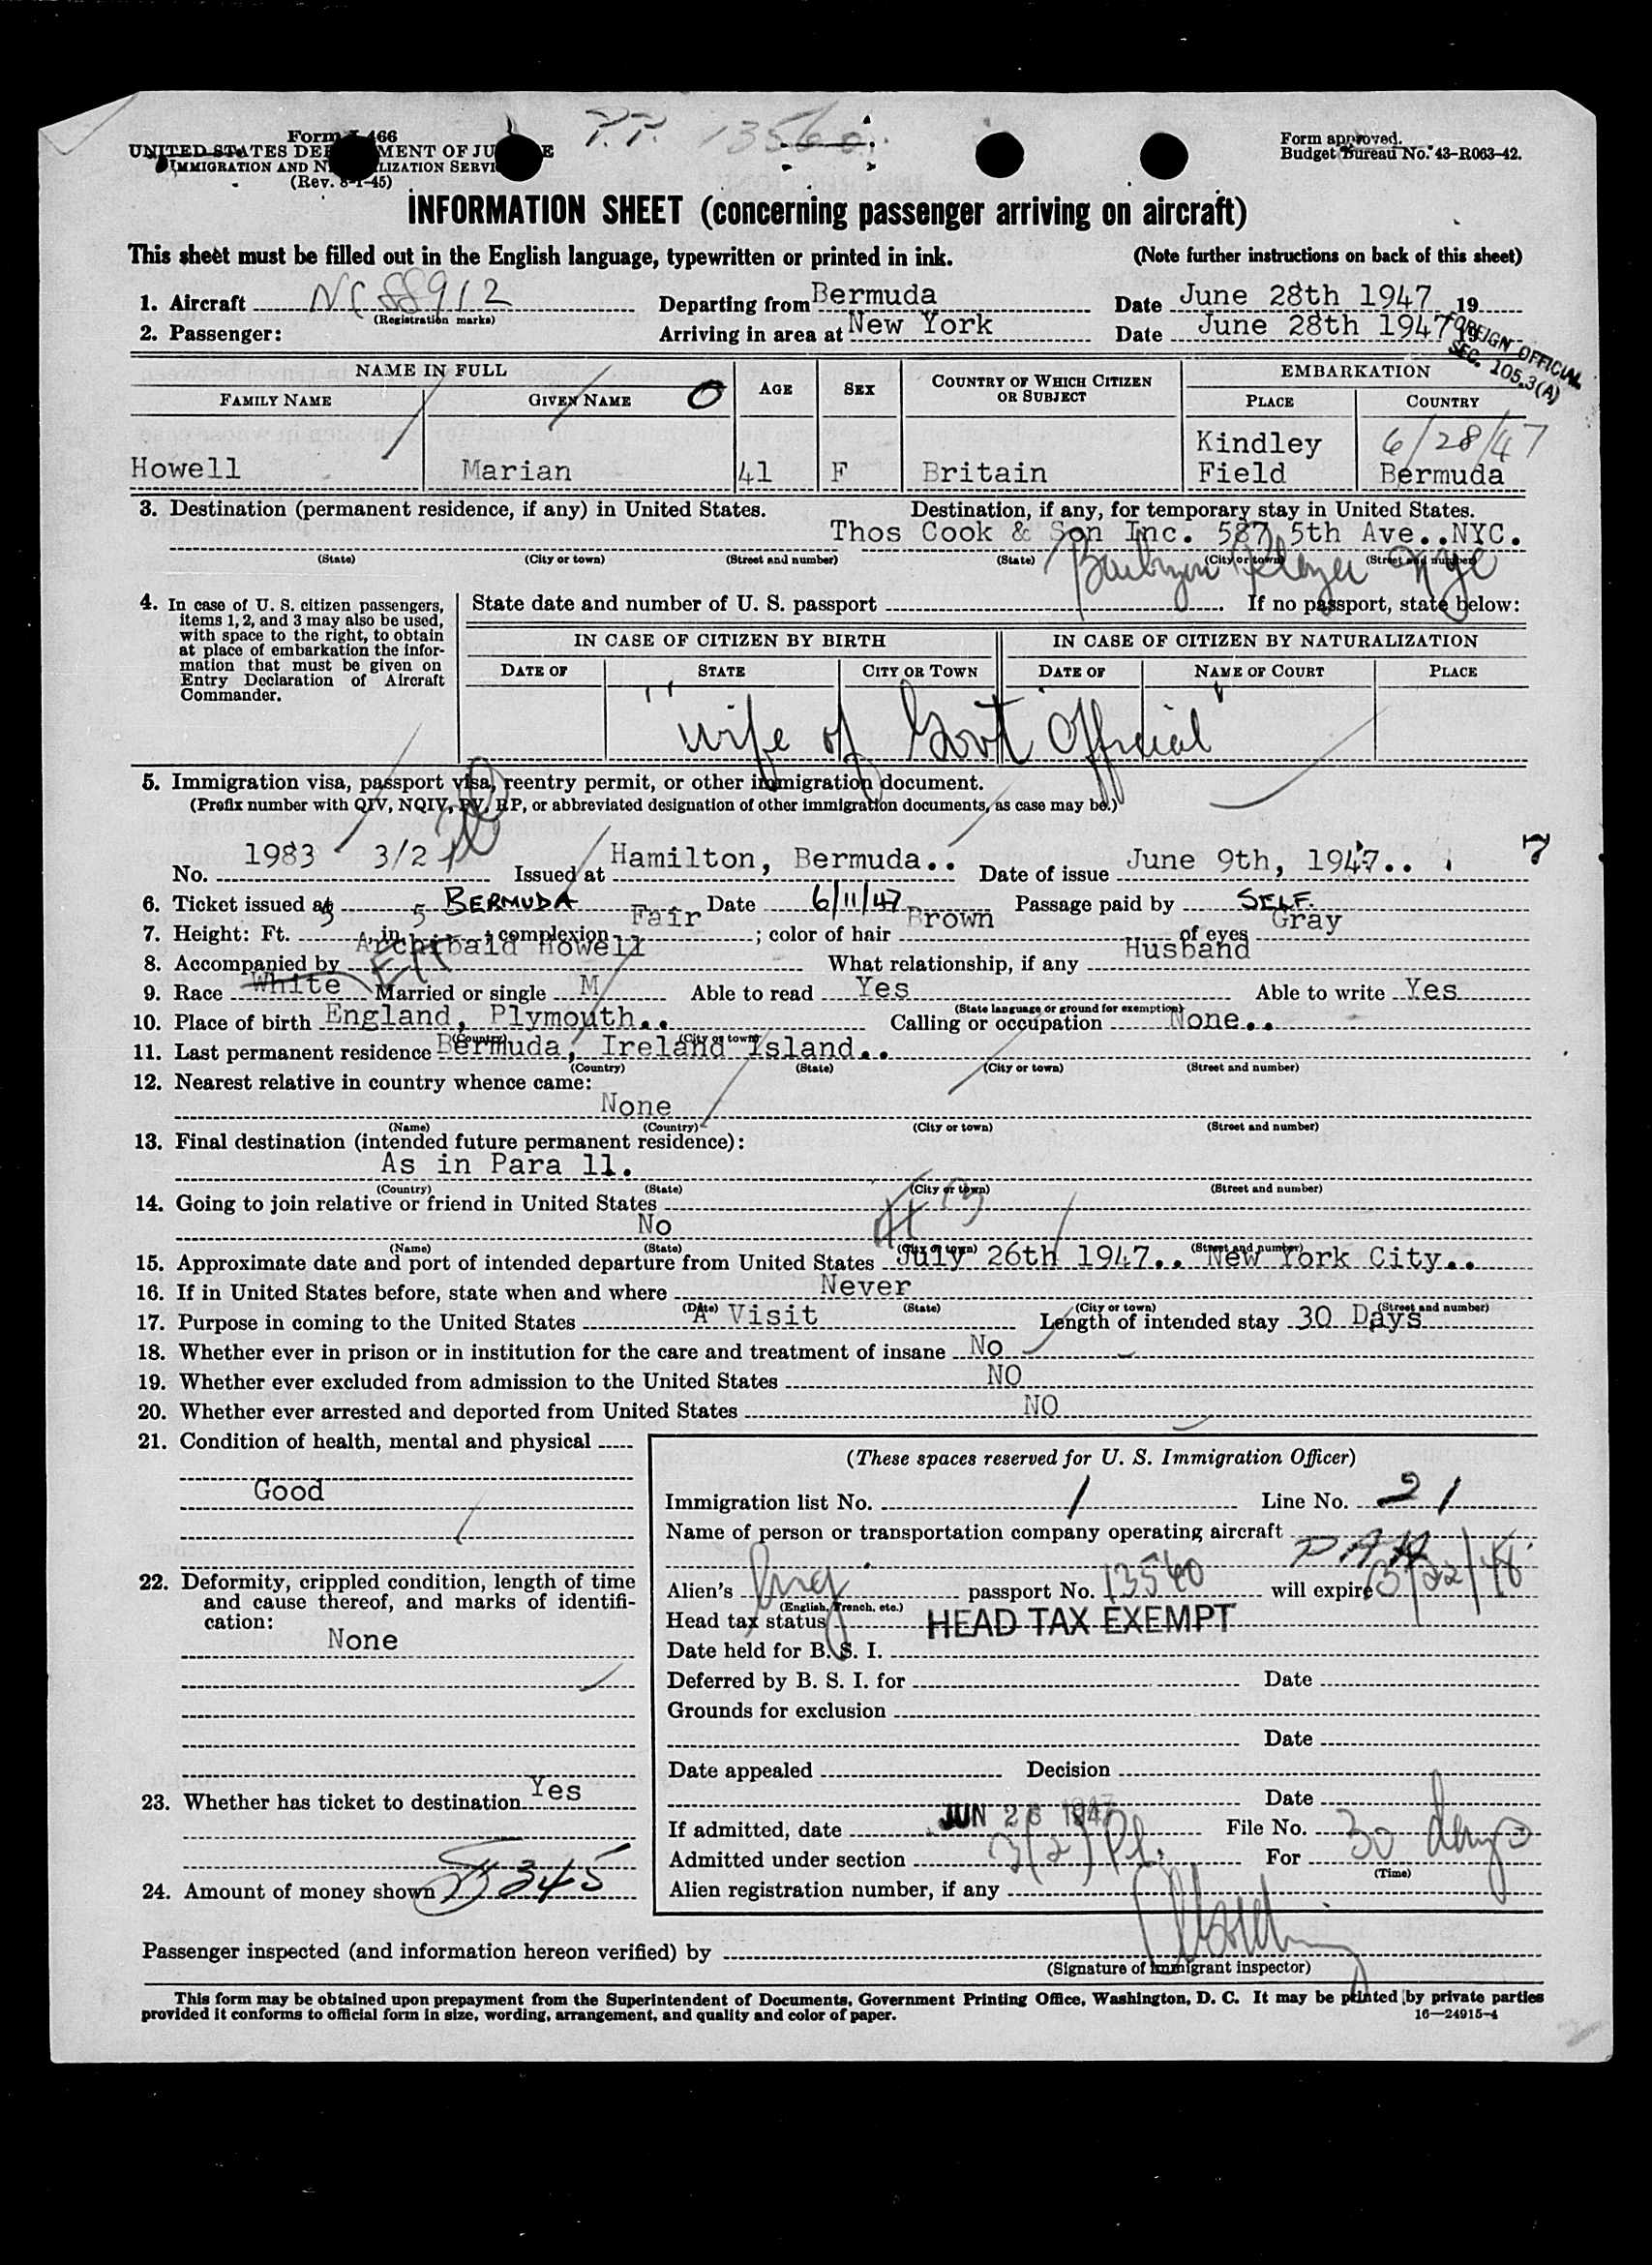 P.P. 13560.
Form I-466
UNITED STATES DEPARTMENT OF JUSTICE
IMMIGRATION AND NATURALIZATION SERVICE
(Rev. 8-1-45)
Form approved.
Budget Bureau No. 43-R063-42.
INFORMATION SHEET (concerning passenger arriving on aircraft)
This sheet must be filled out in the English language, typewritten or printed in ink. (Note further instructions on back of this sheet)
1. Aircraft NC 88912 Departing from Bermuda Date June 28th 1947 19
(Registration marks)
2. Passenger: Arriving in area at New York Date June 28th 1947 19
FOREIGN OFFICIAL
SEC. 105.3(A)
NAME IN FULL AGE SEX COUNTRY OF WHICH CITIZEN OR SUBJECT EMBARKATION
FAMILY NAME GIVEN NAME O PLACE COUNTRY
Kindley 6/28/47
Howell Marian 41 F Britain Field Bermuda
3. Destination (permanent residence, if any) in United States. Destination, if any, for temporary stay in United States.
Thos Cook & Son Inc. 587 5th Ave..NYC.
(State) (City or town) (Street and number) (State) (City or town) (Street and number)
Barbizon Plaza NYC
4. In case of U. S. citizen passengers, items 1, 2, and 3 may also be used, with space to the right, to obtain at place of embarkation the information that must be given on Entry Declaration of Aircraft Commander.
State date and number of U. S. passport If no passport, state below:
IN CASE OF CITIZEN BY BIRTH IN CASE OF CITIZEN BY NATURALIZATION
DATE OF STATE CITY OR TOWN DATE OF NAME OF COURT PLACE
"Wife of Govt Official"
5. Immigration visa, passport visa, reentry permit, or other immigration document.
(Prefix number with QIV, NQIV, PV, RP, or abbreviated designation of other immigration documents, as case may be.)
No. 1983 3/2 Issued at Hamilton, Bermuda.. Date of issue June 9th, 1947.. 7
6. Ticket issued at BERMUDA Date 6/11/47 Passage paid by SELF.
7. Height: Ft. 5, in. 5; complexion Fair; color of hair Brown of eyes Gray
8. Accompanied by Archibald Howell What relationship, if any Husband
9. Race White Married or single M Able to read Yes Able to write Yes
(State language or ground for exemption)
10. Place of birth England, Plymouth.. Calling or occupation None..
(Country) (City or town)
11. Last permanent residence Bermuda, Ireland Island..
(Country) (State) (City or town) (Street and number)
12. Nearest relative in country whence came:
None
(Name) (Country) (City or town) (Street and number)
13. Final destination (intended future permanent residence):
As in Para 11.
(Country) (State) (City or town) (Street and number)
14. Going to join relative or friend in United States
No
(Name) (State) (City or town) (Street and number)
15. Approximate date and port of intended departure from United States July 26th 1947.. New York City..
16. If in United States before, state when and where Never
(Date) (State) (City or town) (Street and number)
17. Purpose in coming to the United States A Visit Length of intended stay 30 Days
18. Whether ever in prison or in institution for the care and treatment of insane No
19. Whether ever excluded from admission to the United States NO
20. Whether ever arrested and deported from United States NO
21. Condition of health, mental and physical
Good
22. Deformity, crippled condition, length of time and cause thereof, and marks of identification:
None
23. Whether has ticket to destination Yes
24. Amount of money shown $345
(These spaces reserved for U. S. Immigration Officer)
Immigration list No. 1 Line No. 21
Name of person or transportation company operating aircraft PAA
Alien's Eng passport No. 13560 will expire 3/22/48
(English, French, etc.)
Head tax status HEAD TAX EXEMPT
Date held for B. S. I.
Deferred by B. S. I. for Date
Grounds for exclusion
Date
Date appealed Decision
Date
If admitted, date JUN 28 1947 File No.
Admitted under section 3(2) For 30 days
(Time)
Alien registration number, if any
Passenger inspected (and information hereon verified) by
(Signature of immigrant inspector)
This form may be obtained upon prepayment from the Superintendent of Documents, Government Printing Office, Washington, D. C. It may be printed by private parties
provided it conforms to official form in size, wording, arrangement, and quality and color of paper. 16—24915-4